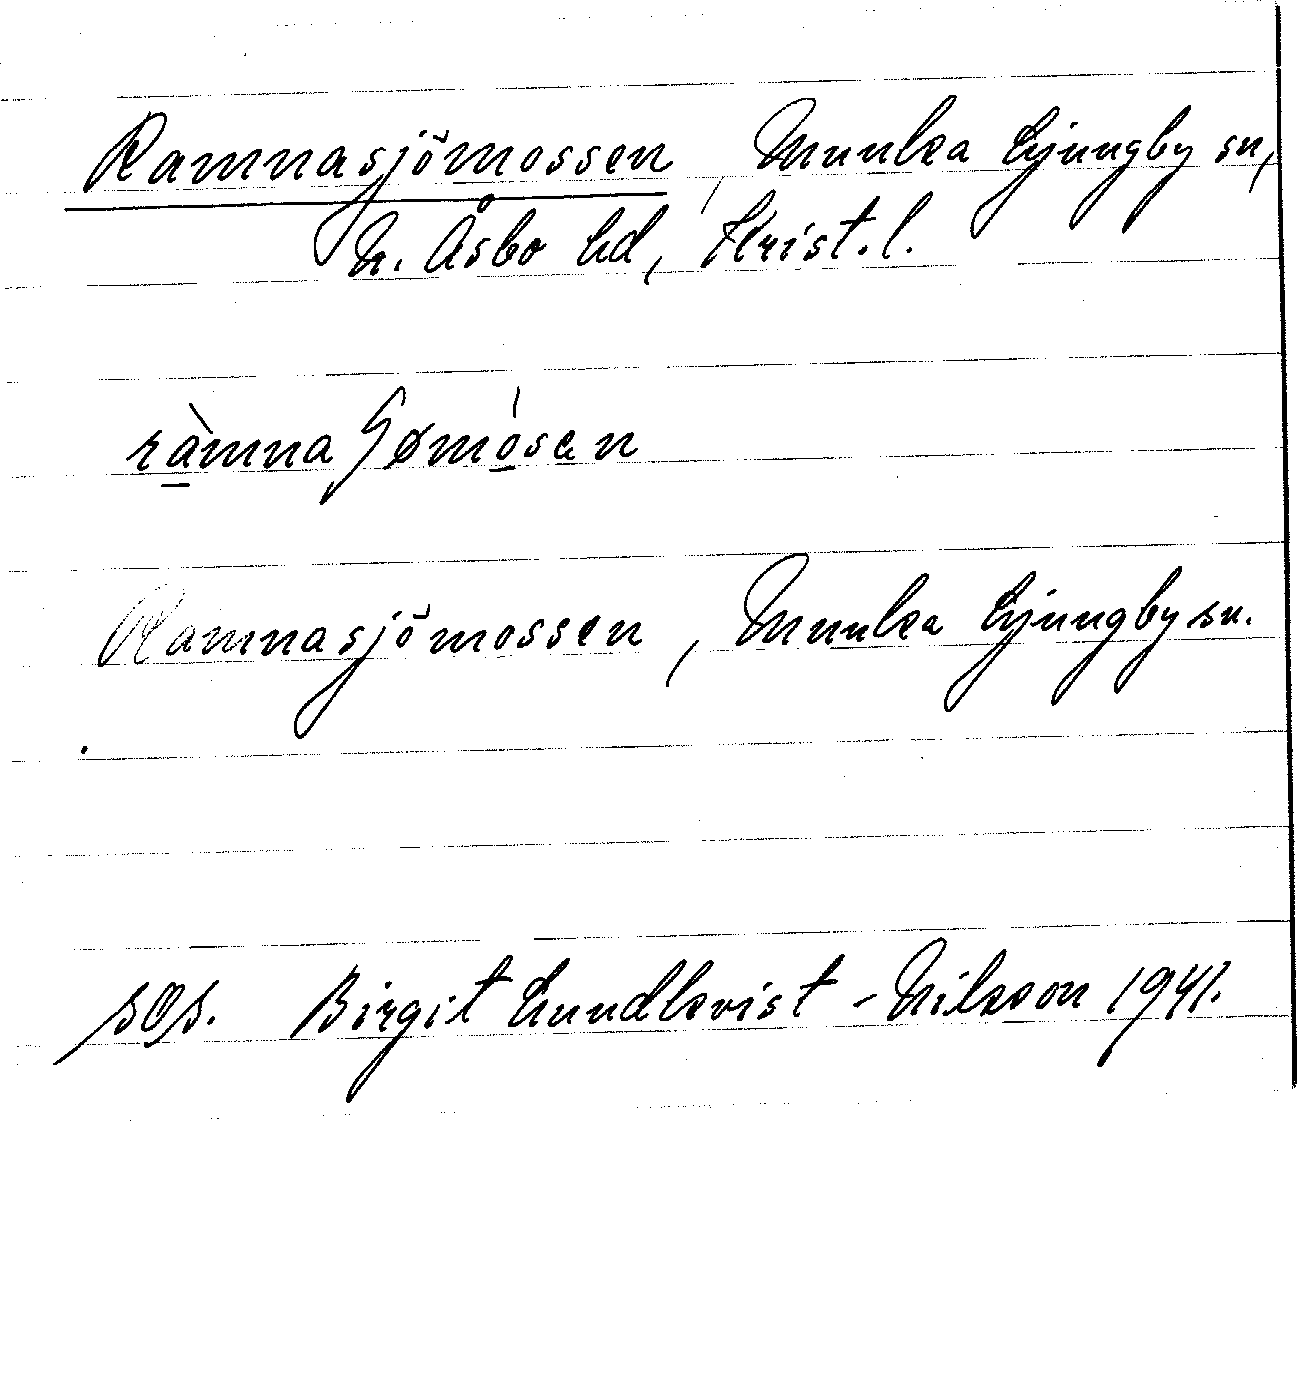 Ramnasjömossen, Munka Ljungby sn,
N. Åsbo hd, Krist. l.
Ramnasjömossen, Munka Ljungby sn.
Birgit Lundkvist-Nilsson 1941.